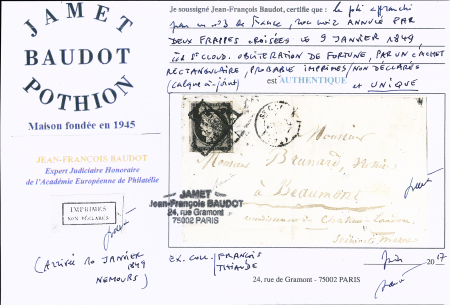 JAMET
BAUDOT
POTHION
Maison fondée en 1945
JEAN-FRANÇOIS BAUDOT
Expert Judiciaire Honoraire
de l'Académie Européenne de Philatélie
IMPRIMES
NON DÉCLARÉS
(Arrivée 10 JANVIER
1849
NEMOURS)
Je soussigné Jean-François Baudot, certifie que : le pli affranchi
par un n°3 de France, 20c noir ANNULÉ PAR
DEUX FRAPPES CROISÉES LE 9 JANVIER 1849
ST CLOUD. OBLITÉRATION DE FORTUNE, PAR UN CACHET
RECTANGULAIRE, PROBABLE IMPRIMES/NON DÉCLARÉS
(calque ci-joint)
est AUTHENTIQUE
et UNIQUE
Monsieur
Monsieur Brunard,
à Beaumont
JAMET
Jean-François BAUDOT
24, rue Gramont
75002 PARIS
EX. COLL. FRANÇOIS
Juin 2017
24, rue de Gramont - 75002 PARIS